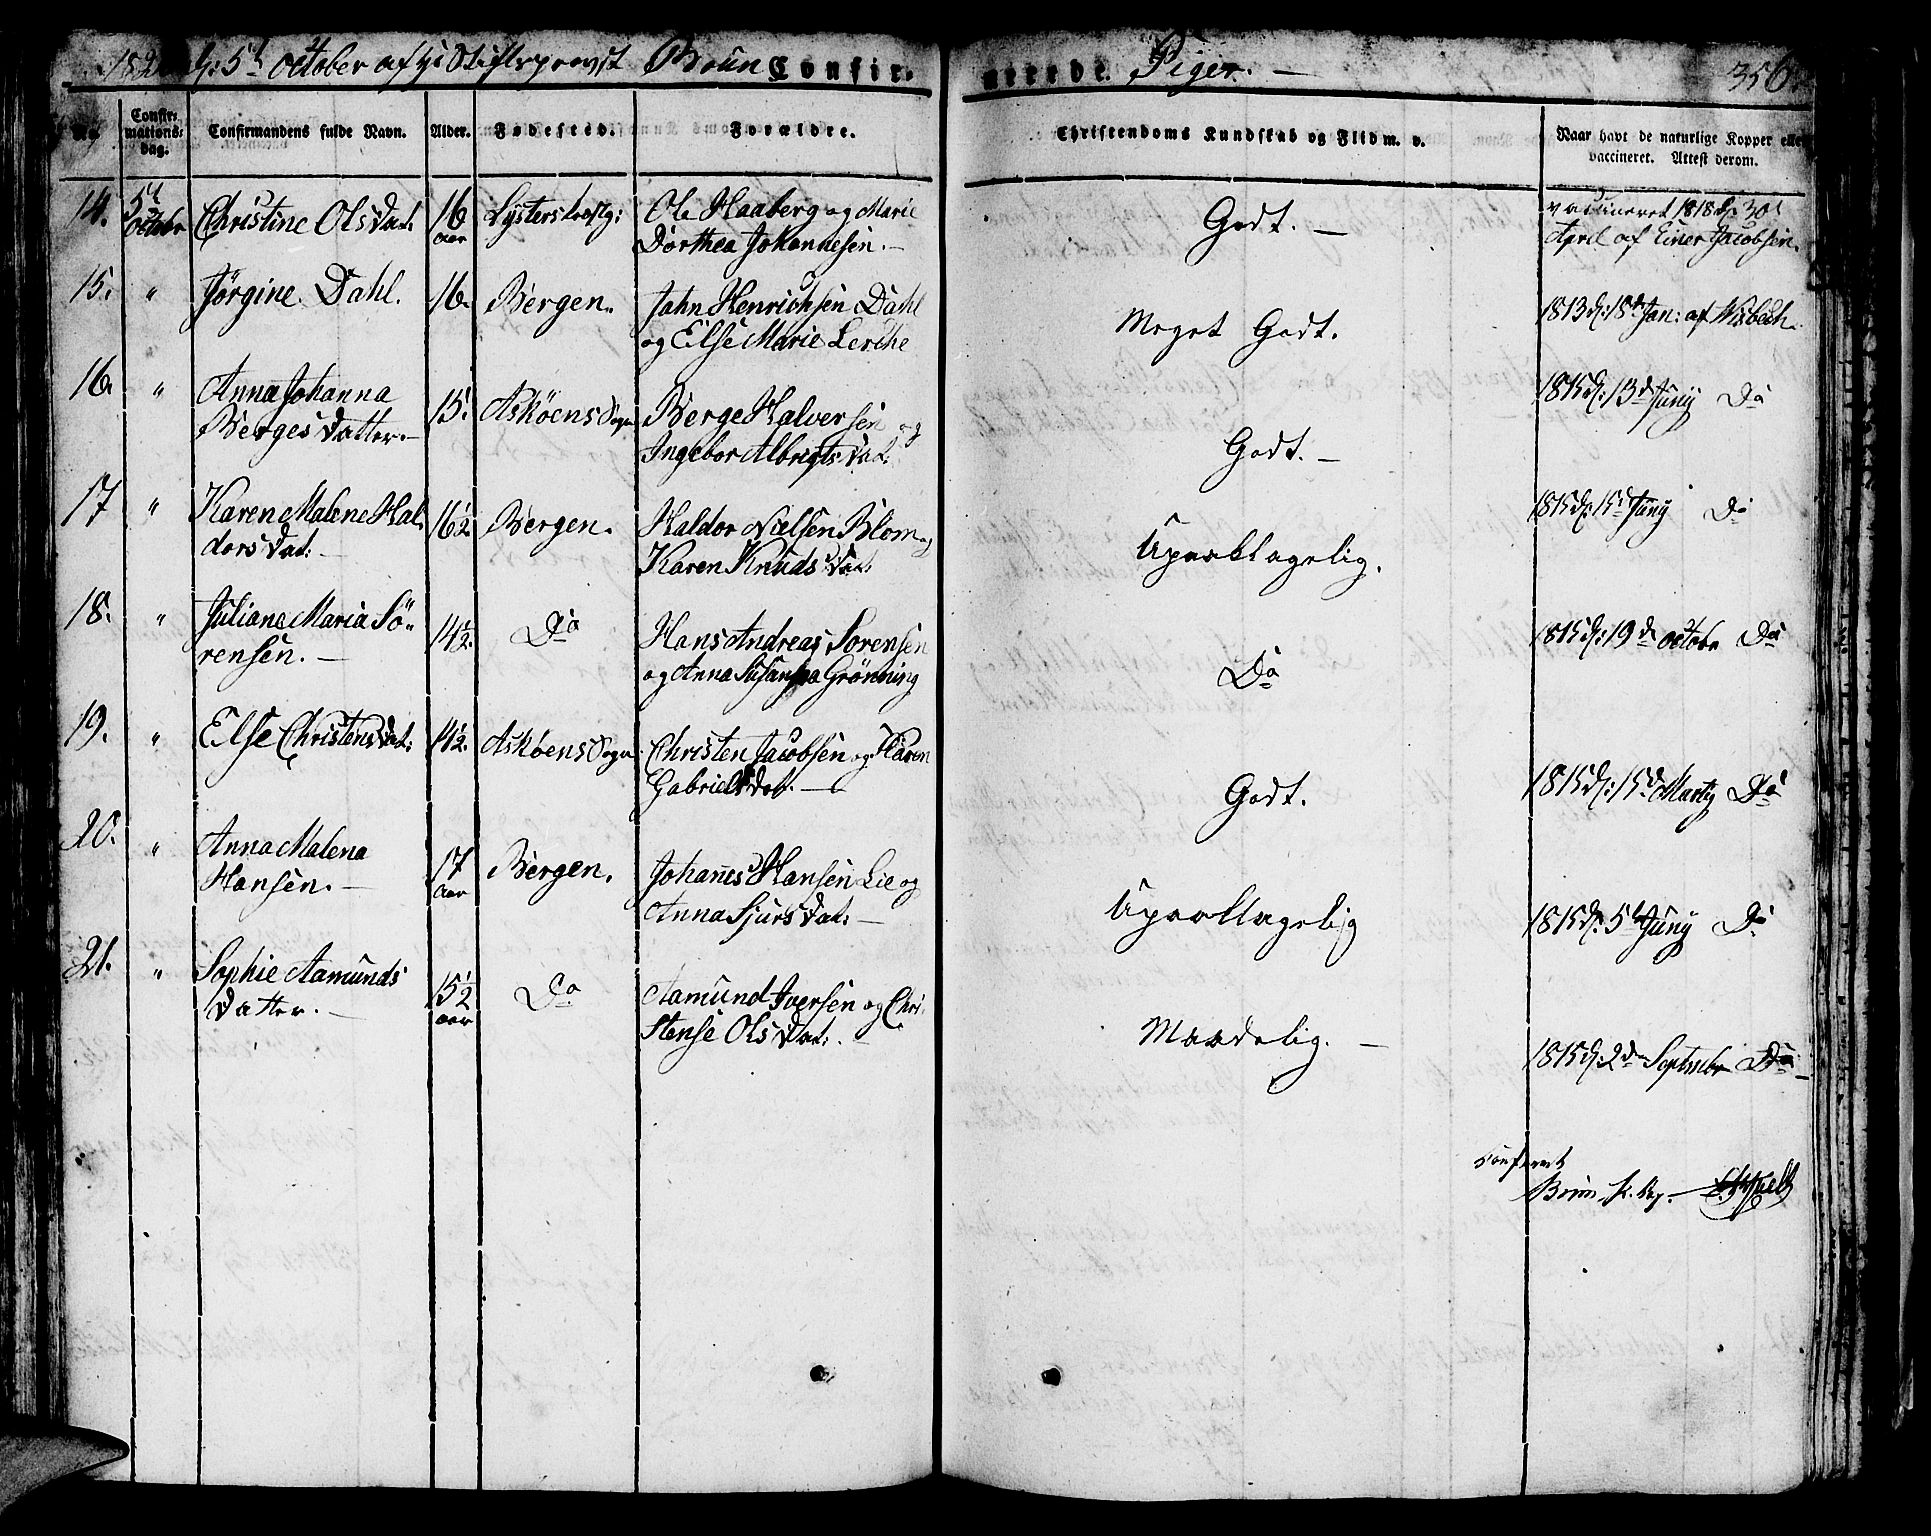 d: 5t October af Hr Stiftsprovst Brun Confir- merede Piger. — 356.
No. Confirmationsdag. Confirmandens fulde Navn. Alder. Fødested. Forældre. Christendoms Kundskab og Flid m. v. Naar havt de naturlige Kopper eller vaccineret. Attest derom.
14. 5t Octobr Christine Olsdat: 16 aar Lysters Præstg: Ole Haaberg og Marie
Dorthea Johannesen. — Godt. — vaccineret 1818 d: 30t
April af Einer Jacobsen.
15. " Jörgine Dahl. 16. Bergen. Jahn Henrichsen Dahl
og Else Marie Lerche Meget Godt. 1813 d: 18de Jan: af Wisbech.
16. " Anna Johanna
Bergesdatter. — 15. Asköens Sogn Berge Halversen og
Ingebor Albrigtsdat: Godt. — 1815 d: 13d Juny Do
17 " Karen Malene Hal-
dorsdat: — 16½ Bergen. Haldor Nielsen Blom og
Karen Knudsdat: Upaaklagelig. 1815 d: 15d Juny Do
18. " Juliane Maria Sö-
rensen. — 14½. Do Hans Andreas Sorensen
og Anna Susanna Grönning Do 1815 d: 19de Octobr Do
19. " Else Christensdat: 14½. Asköens Sogn Christen Jacobsen og Karen
Gabrielsdat. — Godt. 1815 d: 15d Martij Do
20. " Anna Malena
Hansen. — 17 aar Bergen. Johanes Hansen Lie og
Anna Sjursdat: — Upaaklagelig 1815 d: 5t Juny Do
21. " Sophie Aamunds
datter. — 15½ aar Do Aamund Iversen og Chri-
stense Olsdat: — Maadelig. — 1815 d: 2de Septembr Do
confereret
Brun